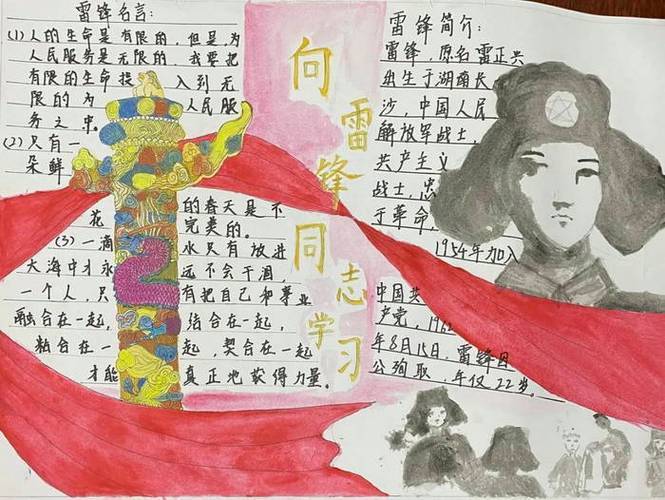 雷锋名言:
(1)人的生命是有限的,但是,为
人民服务是无限的,我要把
有限的生命投 入到无
限的为 人民服
务之中。
(2)只有一
朵鲜
花 的春天是不
完美的。
(3)一滴 水只有放进
大海中才永 远不会干涸,
一个人,只 有把自己和事业
融合在一起, 结合在一起,
粘合在一 起,契合在一起
才能 真正地获得力量。
向雷锋同志学习
雷锋简介:
雷锋,原名雷正兴
出生于湖南长
沙,中国人民
解放军战士,
共产主义
战士,忠
于革命,
1954年加入
中国共
产党,1962
年8月15日,雷锋因
公殉取,年仅22岁。